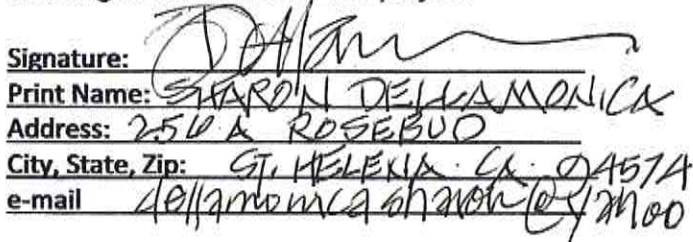 Signature:
Print Name: SHARON DELLAMONICA
Address: 256 A ROSEBUD
City, State, Zip: ST. HELENA. CA. 94574
e-mail dellamonicasharon@yahoo